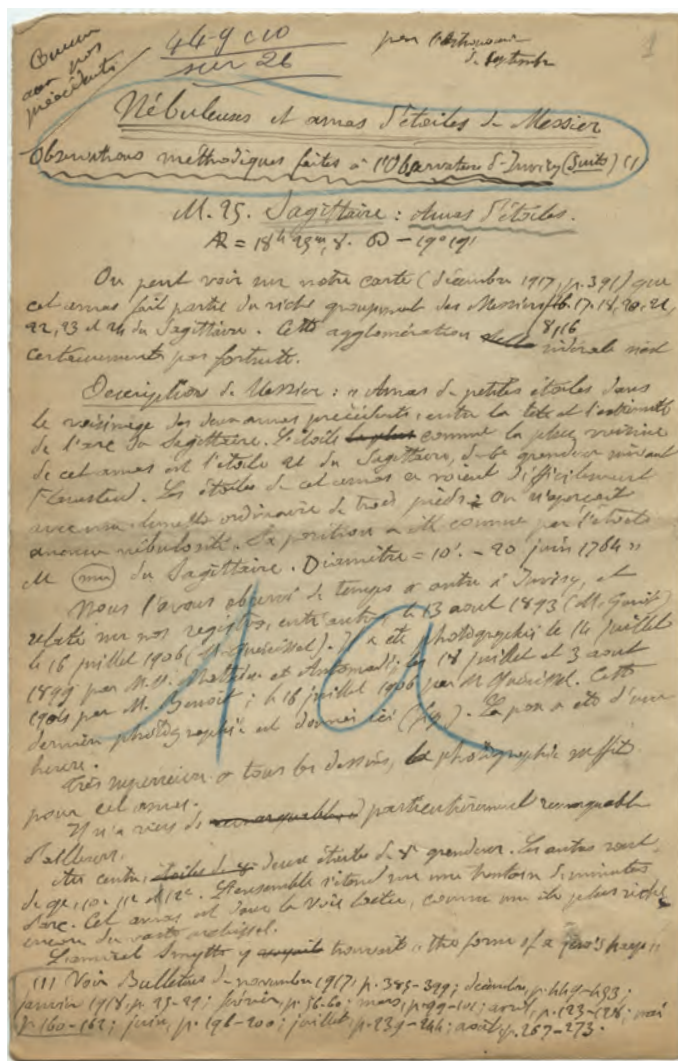 Comme
aux nos
précédents
44-9 c 10
sur 26
pour l'Astronomie
de Septembre
1
Nébuleuses et amas d'étoiles de Messier
Observations méthodiques faites à l'Observatoire de Juvisy (Suite) (1)
M. 25. Sagittaire : Amas d'étoiles.
AR = 18h 25m,8. D — 19° 19'
On peut voir sur notre carte (décembre 1917, p. 391) que
cet amas fait partie du riche groupement des Messier 16. 17. 18. 20. 21,
22, 23 et 24 du Sagittaire. Cette agglomération sidérale n'est
8, 16
certainement pas fortuite.
Description de Messier : « Amas de petites étoiles dans
le voisinage des deux amas précédents, entre la tête et l'extrémité
de l'arc du Sagittaire. L'étoile connue la plus voisine
de cet amas est l'étoile 21 du Sagittaire, de 6e grandeur suivant
Flamsteed. Les étoiles de cet amas se voient difficilement
avec une lunette ordinaire de trois pieds. On n'aperçoit
aucune nébulosité. Sa position a été connue par l'étoile
M (mu) du Sagittaire. Diamètre = 10'. — 20 juin 1764 »
Nous l'avons observé de temps à autre à Juvisy, et
relaté sur nos registres, entre autres le 13 août 1893 (M.
le 16 juillet 1906 (M. Quénisset). Il a été photographié le 14 juillet
1899 par M.M. Mathieu et Antoniadi; les 18 juillet et 3 août
1904 par M. Benoit; le 16 juillet 1906 par M Quénisset. Cette
dernière photographie est donnée ici (fig. ). La pose a été d'une
heure.
1a
Très supérieure à tous les dessins, la photographie suffit
pour cet amas.
Il n'a rien de particulièrement remarquable
d'ailleurs.
Au centre, deux étoiles de 8e grandeur. Les autres sont
de 9e, 10e, 11e et 12e. L'ensemble s'étend sur une trentaine de minutes
d'arc. Cet amas est dans la Voie lactée, comme un île plus riche
encore du vaste archipel.
L'amiral Smyth y trouvait « the form of a
(1) Voir Bulletins de novembre 1917, p. 385-399; décembre, p. 449-453;
janvier 1918, p. 23-29; février, p. 56-60; mars, p. 99-101; avril, p. 123-128; mai
p. 160-162; juin, p. 196-200; juillet, p. 239-244; août, p. 267-273.